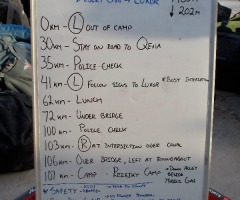 LUXOR
0KM - L OUT OF CAMP
30KM - STAY ON ROAD TO QENA
35KM - POLICE CHECK
41KM - L FOLLOW SIGNS TO LUXOR * BUSY INTERSECTION
62KM - LUNCH
72KM - UNDER BRIDGE
100KM - POLICE CHECK
103KM - R AT INTERSECTION OVER CANAL
106KM - OVER BRIDGE, LEFT AT ROUNDABOUT
107KM - CAMP - REZEIKY CAMP * DOWN ALLEY BEHIND MOBIL GAS
* SAFETY -